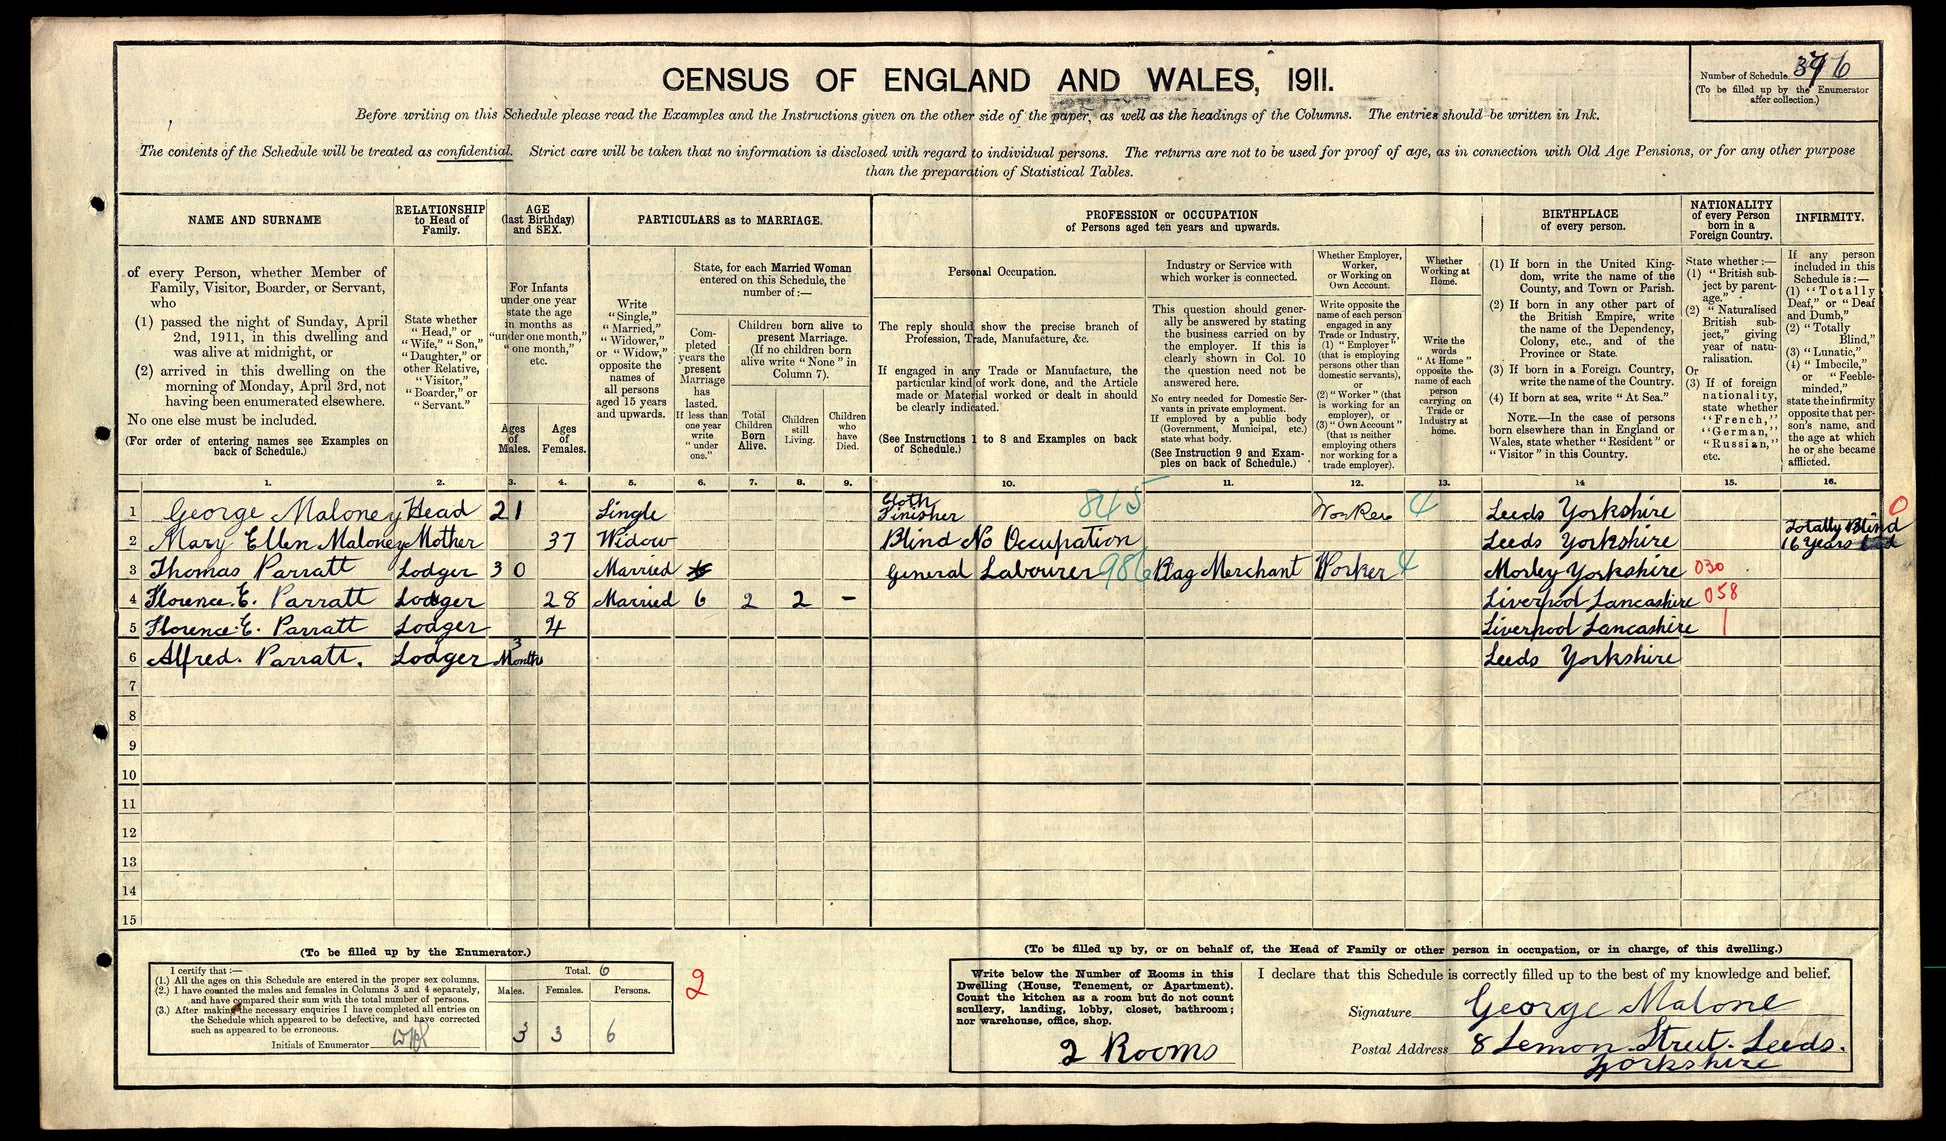 CENSUS OF ENGLAND AND WALES, 1911.
Number of Schedule 376
(To be filled up by the Enumerator
after collection.)
Before writing on this Schedule please read the Examples and the Instructions given on the other side of the paper, as well as the headings of the Columns. The entries should be written in Ink.
The contents of the Schedule will be treated as confidential. Strict care will be taken that no information is disclosed with regard to individual persons. The returns are not to be used for proof of age, as in connection with Old Age Pensions, or for any other purpose
than the preparation of Statistical Tables.
NAME AND SURNAME
of every Person, whether Member of
Family, Visitor, Boarder, or Servant,
who
(1) passed the night of Sunday, April
2nd, 1911, in this dwelling and
was alive at midnight, or
(2) arrived in this dwelling on the
morning of Monday, April 3rd, not
having been enumerated elsewhere.
No one else must be included.
(For order of entering names see Examples on
back of Schedule.)
RELATIONSHIP
to Head of
Family.
State whether
"Head," or
"Wife," "Son,"
"Daughter," or
other Relative,
"Visitor,"
"Boarder," or
"Servant."
AGE
(last Birthday)
and SEX.
For Infants
under one year
state the age
in months as
"under one month,"
"one month,"
etc.
Ages
of
Males.
Ages
of
Females.
PARTICULARS as to MARRIAGE.
Write
"Single,"
"Married,"
"Widower,"
or "Widow,"
opposite the
names of
all persons
aged 15 years
and upwards.
State, for each Married Woman
entered on this Schedule, the
number of:—
Completed
years the
present
Marriage
has
lasted.
If less than
one year
write
"under
one."
Children born alive to
present Marriage.
(If no children born
alive write "None" in
Column 7).
Total
Children
Born
Alive.
Children
still
Living.
Children
who
have
Died.
PROFESSION or OCCUPATION
of Persons aged ten years and upwards.
Personal Occupation.
The reply should show the precise branch of
Profession, Trade, Manufacture, &c.
If engaged in any Trade or Manufacture, the
particular kind of work done, and the Article
made or Material worked or dealt in should
be clearly indicated.
(See Instructions 1 to 8 and Examples on back
of Schedule.)
Industry or Service with
which worker is connected.
This question should gener-
ally be answered by stating
the business carried on by
the employer. If this is
clearly shown in Col. 10
the question need not be
answered here.
No entry needed for Domestic Ser-
vants in private employment.
If employed by a public body
(Government, Municipal, etc.)
state what body.
(See Instruction 9 and Exam-
ples on back of Schedule.)
Whether Employer,
Worker,
or Working on
Own Account.
Write opposite the
name of each person
engaged in any
Trade or Industry,
(1) "Employer"
(that is employing
persons other than
domestic servants),
or
(2) "Worker" (that
is working for an
employer), or
(3) "Own Account"
(that is neither
employing others
nor working for a
trade employer).
Whether
Working at
Home.
Write the
words
"At Home"
opposite the
name of each
person
carrying on
Trade or
Industry at
home.
BIRTHPLACE
of every person.
(1) If born in the United King-
dom, write the name of the
County, and Town or Parish.
(2) If born in any other part of
the British Empire, write
the name of the Dependency,
Colony, etc., and of the
Province or State.
(3) If born in a Foreign Country,
write the name of the Country.
(4) If born at sea, write "At Sea."
NOTE.—In the case of persons
born elsewhere than in England or
Wales, state whether "Resident" or
"Visitor" in this Country.
NATIONALITY
of every Person
born in a
Foreign Country.
State whether:—
(1) "British sub-
ject by parent-
age."
(2) "Naturalised
British sub-
ject," giving
year of natu-
ralisation.
Or
(3) If of foreign
nationality,
state whether
"French,"
"German,"
"Russian,"
etc.
INFIRMITY.
If any person
included in this
Schedule is:—
(1) "Totally
Deaf," or "Deaf
and Dumb,"
(2) "Totally
Blind,"
(3) "Lunatic,"
(4) "Imbecile,"
or "Feeble-
minded,"
state the infirmity
opposite that per-
son's name, and
the age at which
he or she became
afflicted.
1. 2. 3. 4. 5. 6. 7. 8. 9. 10. 11. 12. 13. 14 15. 16.
1 George Maloney Head 21 Single Cloth Finisher 845 Worker 4 Leeds Yorkshire 0
2 Mary Ellen Maloney Mother 37 Widow Blind No Occupation Leeds Yorkshire Totally Blind 16 Years
3 Thomas Parratt Lodger 30 Married General Labourer 986 Rag Merchant Worker 4 Morley Yorkshire 030
4 Florence. E. Parratt Lodger 28 Married 6 2 2 – Liverpool Lancashire 058
5 Florence. E. Parratt Lodger 4 Liverpool Lancashire 1
6 Alfred. Parratt. Lodger 3 Month Leeds Yorkshire
7
8
9
10
11
12
13
14
15
(To be filled up by the Enumerator.)
I certify that:—
(1.) All the ages on this Schedule are entered in the proper sex columns.
(2.) I have counted the males and females in Columns 3 and 4 separately,
and have compared their sum with the total number of persons.
(3.) After making the necessary enquiries I have completed all entries on
the Schedule which appeared to be defective, and have corrected
such as appeared to be erroneous.
Initials of Enumerator
Total. 6
Males. Females. Persons.
3 3 6
2
(To be filled up by, or on behalf of, the Head of Family or other person in occupation, or in charge, of this dwelling.)
Write below the Number of Rooms in this
Dwelling (House, Tenement, or Apartment).
Count the kitchen as a room but do not count
scullery, landing, lobby, closet, bathroom;
nor warehouse, office, shop.
2 Rooms
I declare that this Schedule is correctly filled up to the best of my knowledge and belief.
Signature George Malone
Postal Address 8 Lemon Street. Leeds.
Yorkshire